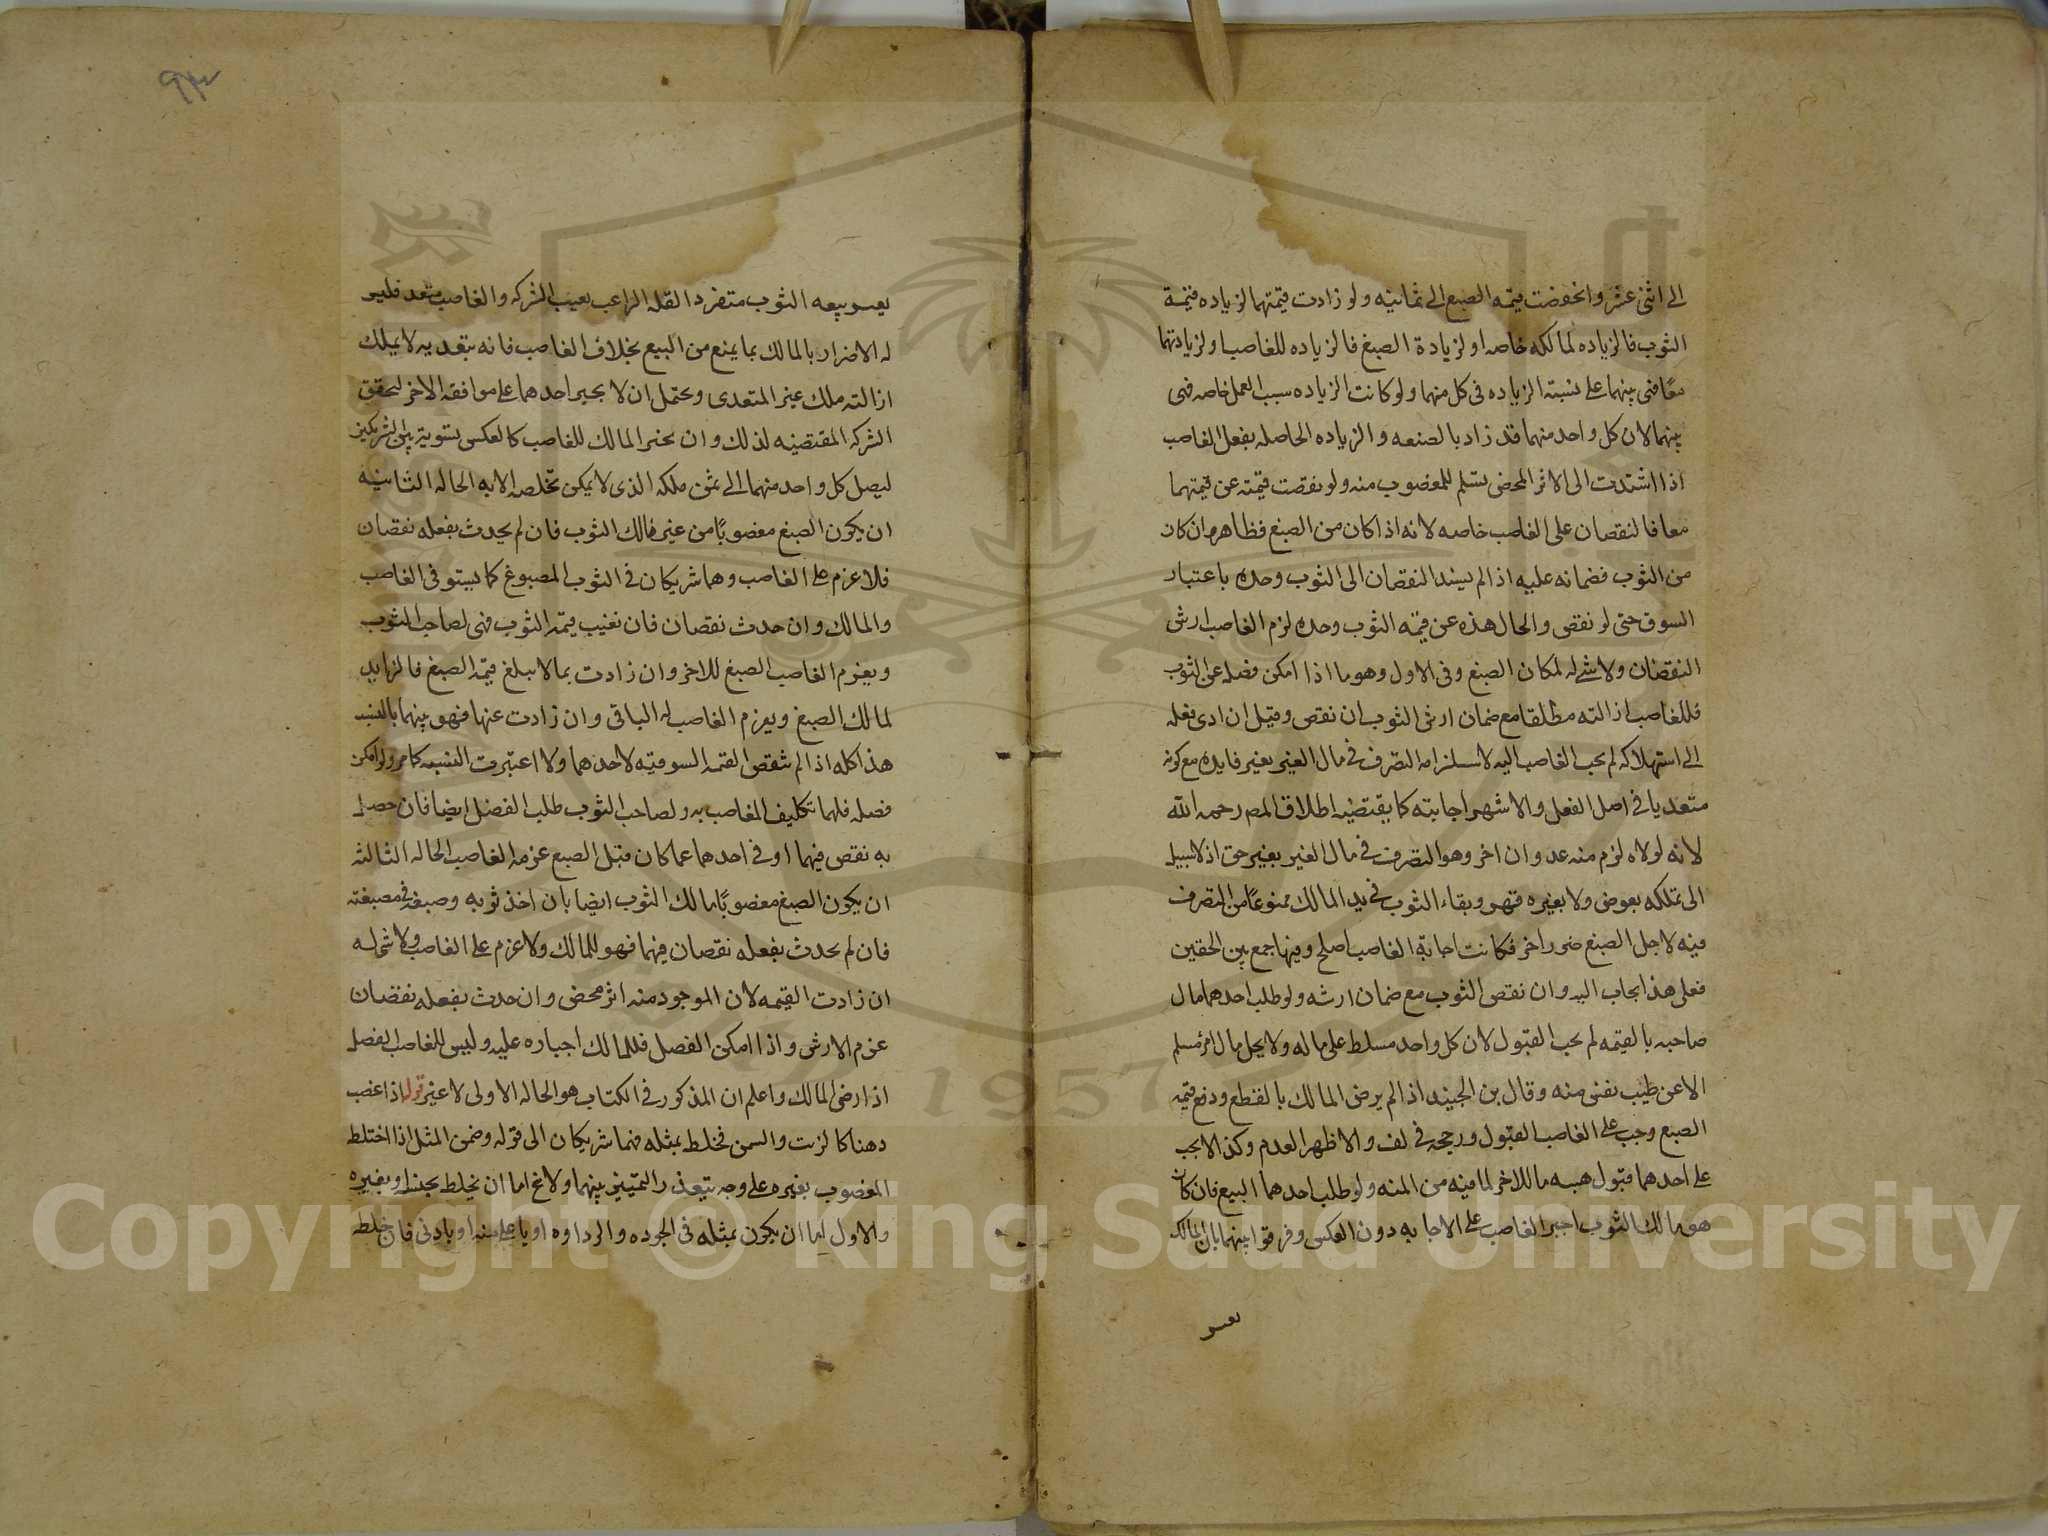 الى اثنى عشر وانخفضت قيمة الصبغ الى ثمانيه ولو زادت قيمتهما لزياده قيمة
الثوب فالزياده لمالكه خاصه او لزيادة الصبغ فالزياده للغاصب او لزيادتهما
معًا فهى بينهما على نسبته الزياده فى كل منهما ولو كانت الزياده بسبب العمل خاصه فهى
بينهما لان كل واحد منهما قد زاد بالصنعه والزياده الحاصله بفعل الغاصب
اذا استندت الى الاثر المحض تسلم للمغصوب منه ولو نقصت قيمته عن قيمتهما
معا فالنقصان على الغاصب خاصه لانه اذا كان من الصبغ فظاهر وان كان
من الثوب فضمانه عليه اذا لم يستند النقصان الى الثوب وحده باعتبار
السوق حتى لو نقص والحال هذه عن قيمه الثوب وحده لزم الغاصب ارش
النقصان ولا شى له لمكان الصبغ وفى الاول وهو ما اذا امكن فصله عن الثوب
فللغاصب ازالته مطلقا مع ضمان ارش الثوب ان نقص وقيل ان ادى فعله
الى استهلاكه لم يجب الغاصب اليه لاستلزامه التصرف فى مال الغير بغير فايده مع كونه
متعديا فى اصل الفعل والاشهر اجابته كما يقتضيه اطلاق المص رحمه الله
لانه لولاه لزم منه عدوان اخر وهو التصرف فى مال الغير بغير حق اذ لا سبيل
الى تملكه بعوض ولا بغيره قهرا وبقاء الثوب فى يد المالك ممنوعًا من التصرف
فيه لاجل الصبغ ضرر اخر فكانت اجابة الغاصب اصلح وفيها جمع بين الحقين
فعلى هذا يجاب اليه وان نقص الثوب مع ضمان ارشه ولو طلب احدهما مال
صاحبه بالقيمه لم يجب القبول لان كل واحد مسلط على ماله ولا يحل مال امرئ مسلم
الا عن طيب نفس منه وقال بن الجنيد اذا لم يرض المالك بالقطع ودفع قيمة
الصبغ وجب على الغاصب القبول ورجحه فى لف والاظهر العدم وكذا لا يجب
على احدهما قبول هبه ما للاخر لما فيه من المنه ولو طلب احدهما البيع فان كان
هو مالك الثوب اجبر الغاصب على الاجابه دون العكس وفرقوا بينهما بان المالك
يعسر
٩٣
يعسر بيعه الثوب متفردا لقله الراغب بعيب الشركه والغاصب متعد فليس
له الاضرار بالمالك بما يمنع من البيع بخلاف الغاصب فانه بتعديه لا يملك
ازالته ملك غير المتعدى ويحتمل ان لا يجبر احدهما على موافقه الاخر لتحقق
الشركه المقتضيه لذلك وان يجبر المالك للغاصب كالعكس تسوية بين الشريكين
ليصل كل واحد منهما الى ثمن ملكه الذى لا يمكن تخلصه الا به الحاله الثانيه
ان يكون الصبغ مغصوبًا من غير مالك الثوب فان لم يحدث بفعله نقصان
فلا غرم على الغاصب وهما شريكان فى الثوب المصبوغ كما يستوفى الغاصب
والمالك وان حدث نقصان فان بقيت قيمة الثوب فهى لصاحب الثوب
ويغرم الغاصب الصبغ للاخر وان زادت بما لا يبلغ قيمة الصبغ فالزايد
لمالك الصبغ ويغرم الغاصب له الباقى وان زادت عنها فهو بينهما بالنسبه
هذا كله اذا لم تنقص القيمه السوقيه لاحدهما والا اعتبرت النسبه كما مر ولو امكن
فصله فلهما تكليف الغاصب به ولصاحب الثوب طلب الفصل ايضا فان حصل
به نقص فيهما او فى احدهما عما كان قبل الصبغ غرمه الغاصب الحاله الثالثه
ان يكون الصبغ مغصوبًا لمالك الثوب ايضا بان اخذ ثوبه وصبغه فى مصبغته
فان لم يحدث بفعله نقصان فيهما فهو للمالك ولا غرم على الغاصب ولا شى له
ان زادت القيمه لان الموجود منه اثر محض وان حدث بفعله نقصان
غرم الارش واذا امكن الفصل فللمالك اجباره عليه وليس للغاصب الفصل
اذا رضى المالك واعلم ان المذكور فى الكتاب هو الحاله الاولى لا غير قوله اذا غصب
دهنا كالزيت والسمن فخلط بمثله فهما شريكان الى قوله وضمن المثل اذا اختلط
المغصوب بغيره على وجه يتعذر التمييز بينهما ولا يخ اما ان يخلط بجنسه او بغيره
والاول اما ان يكون بمثله فى الجوده والرداوه او باعلى منه او بادنى فان خلط